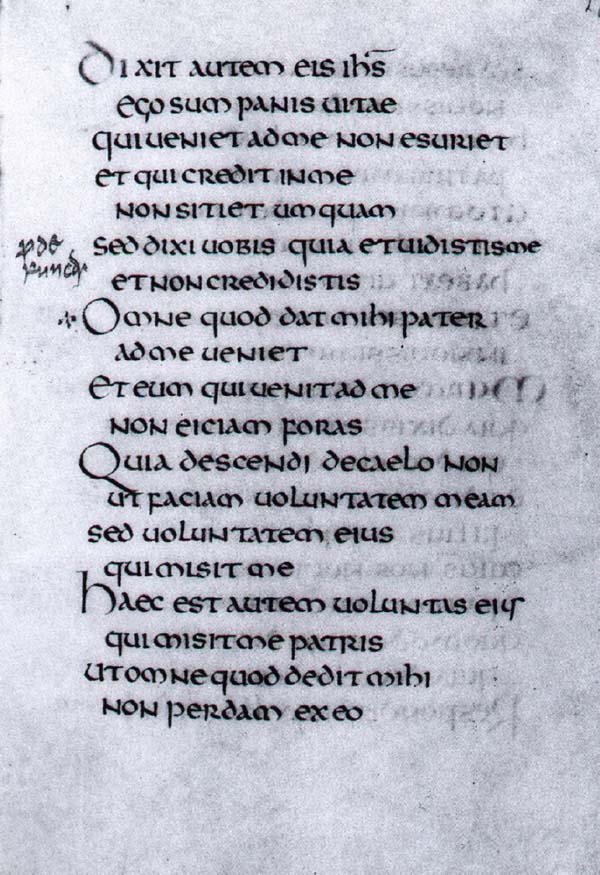 Dixit autem eis ihs̄
ego sum panis uitae
qui ueniet ad me non esuriet
et qui credit in me
non sitiet umquam
sed dixi uobis quia et uidistis me
et non credidistis
Omne quod dat mihi pater
ad me ueniet
et eum qui uenit ad me
non eiciam foras
Quia descendi de caelo non
ut faciam uoluntatem meam
sed uoluntatem eius
qui misit me
haec est autem uoluntas eius
qui misit me patris
ut omne quod dedit mihi
non perdam ex eo